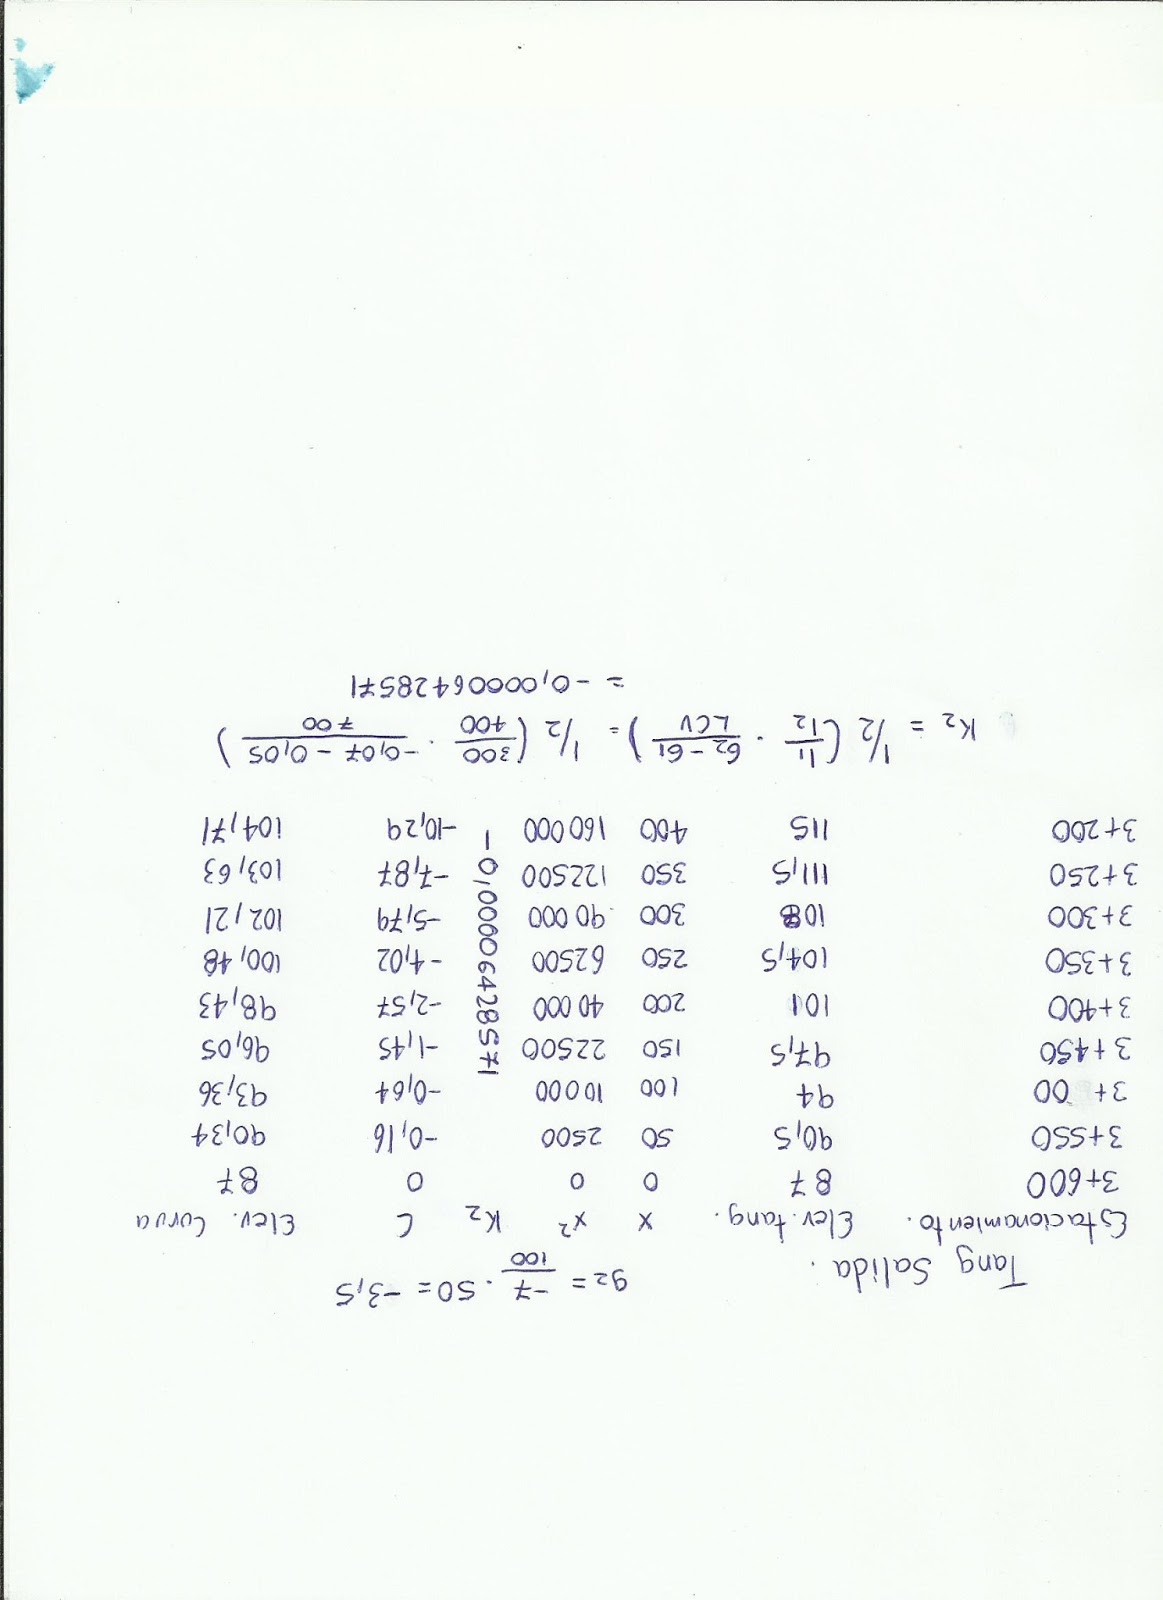 g₂ = -7/100 · 50 = -3,5
Tang Salida.
Estacionamiento. Elev. tang. x x² K₂ C Elev. Curva
3+600 87 0 0 0 87
3+550 90,5 50 2500 -0,16 90,34
3+ 00 94 100 10000 -0,64 93,36
3+450 97,5 150 22500 -1,45 96,05
3+400 101 200 40000 -2,57 98,43
3+350 104,5 250 62500 -4,02 100,48
3+300 108 300 90000 -5,79 102,21
3+250 111,5 350 122500 -7,87 103,63
3+200 115 400 160000 -10,29 104,71
-0,00006428571
K₂ = 1/2 (l1/l2 · G2-G1/LCV) = 1/2 (300/400 · -0,07-0,05/700)
= -0,00006428571